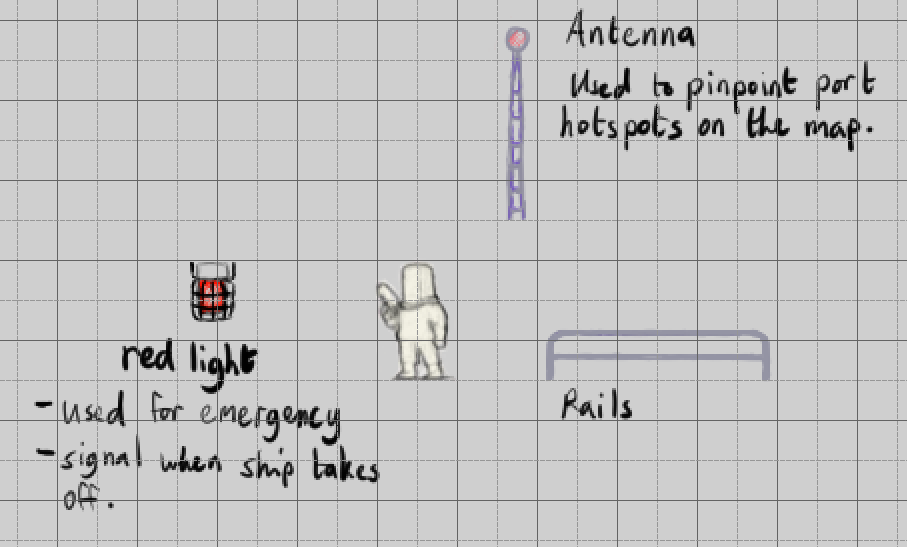 Antenna
Used to pinpoint port
hotspots on the map.
red light
- used for emergency
- signal when ship takes
off.
Rails